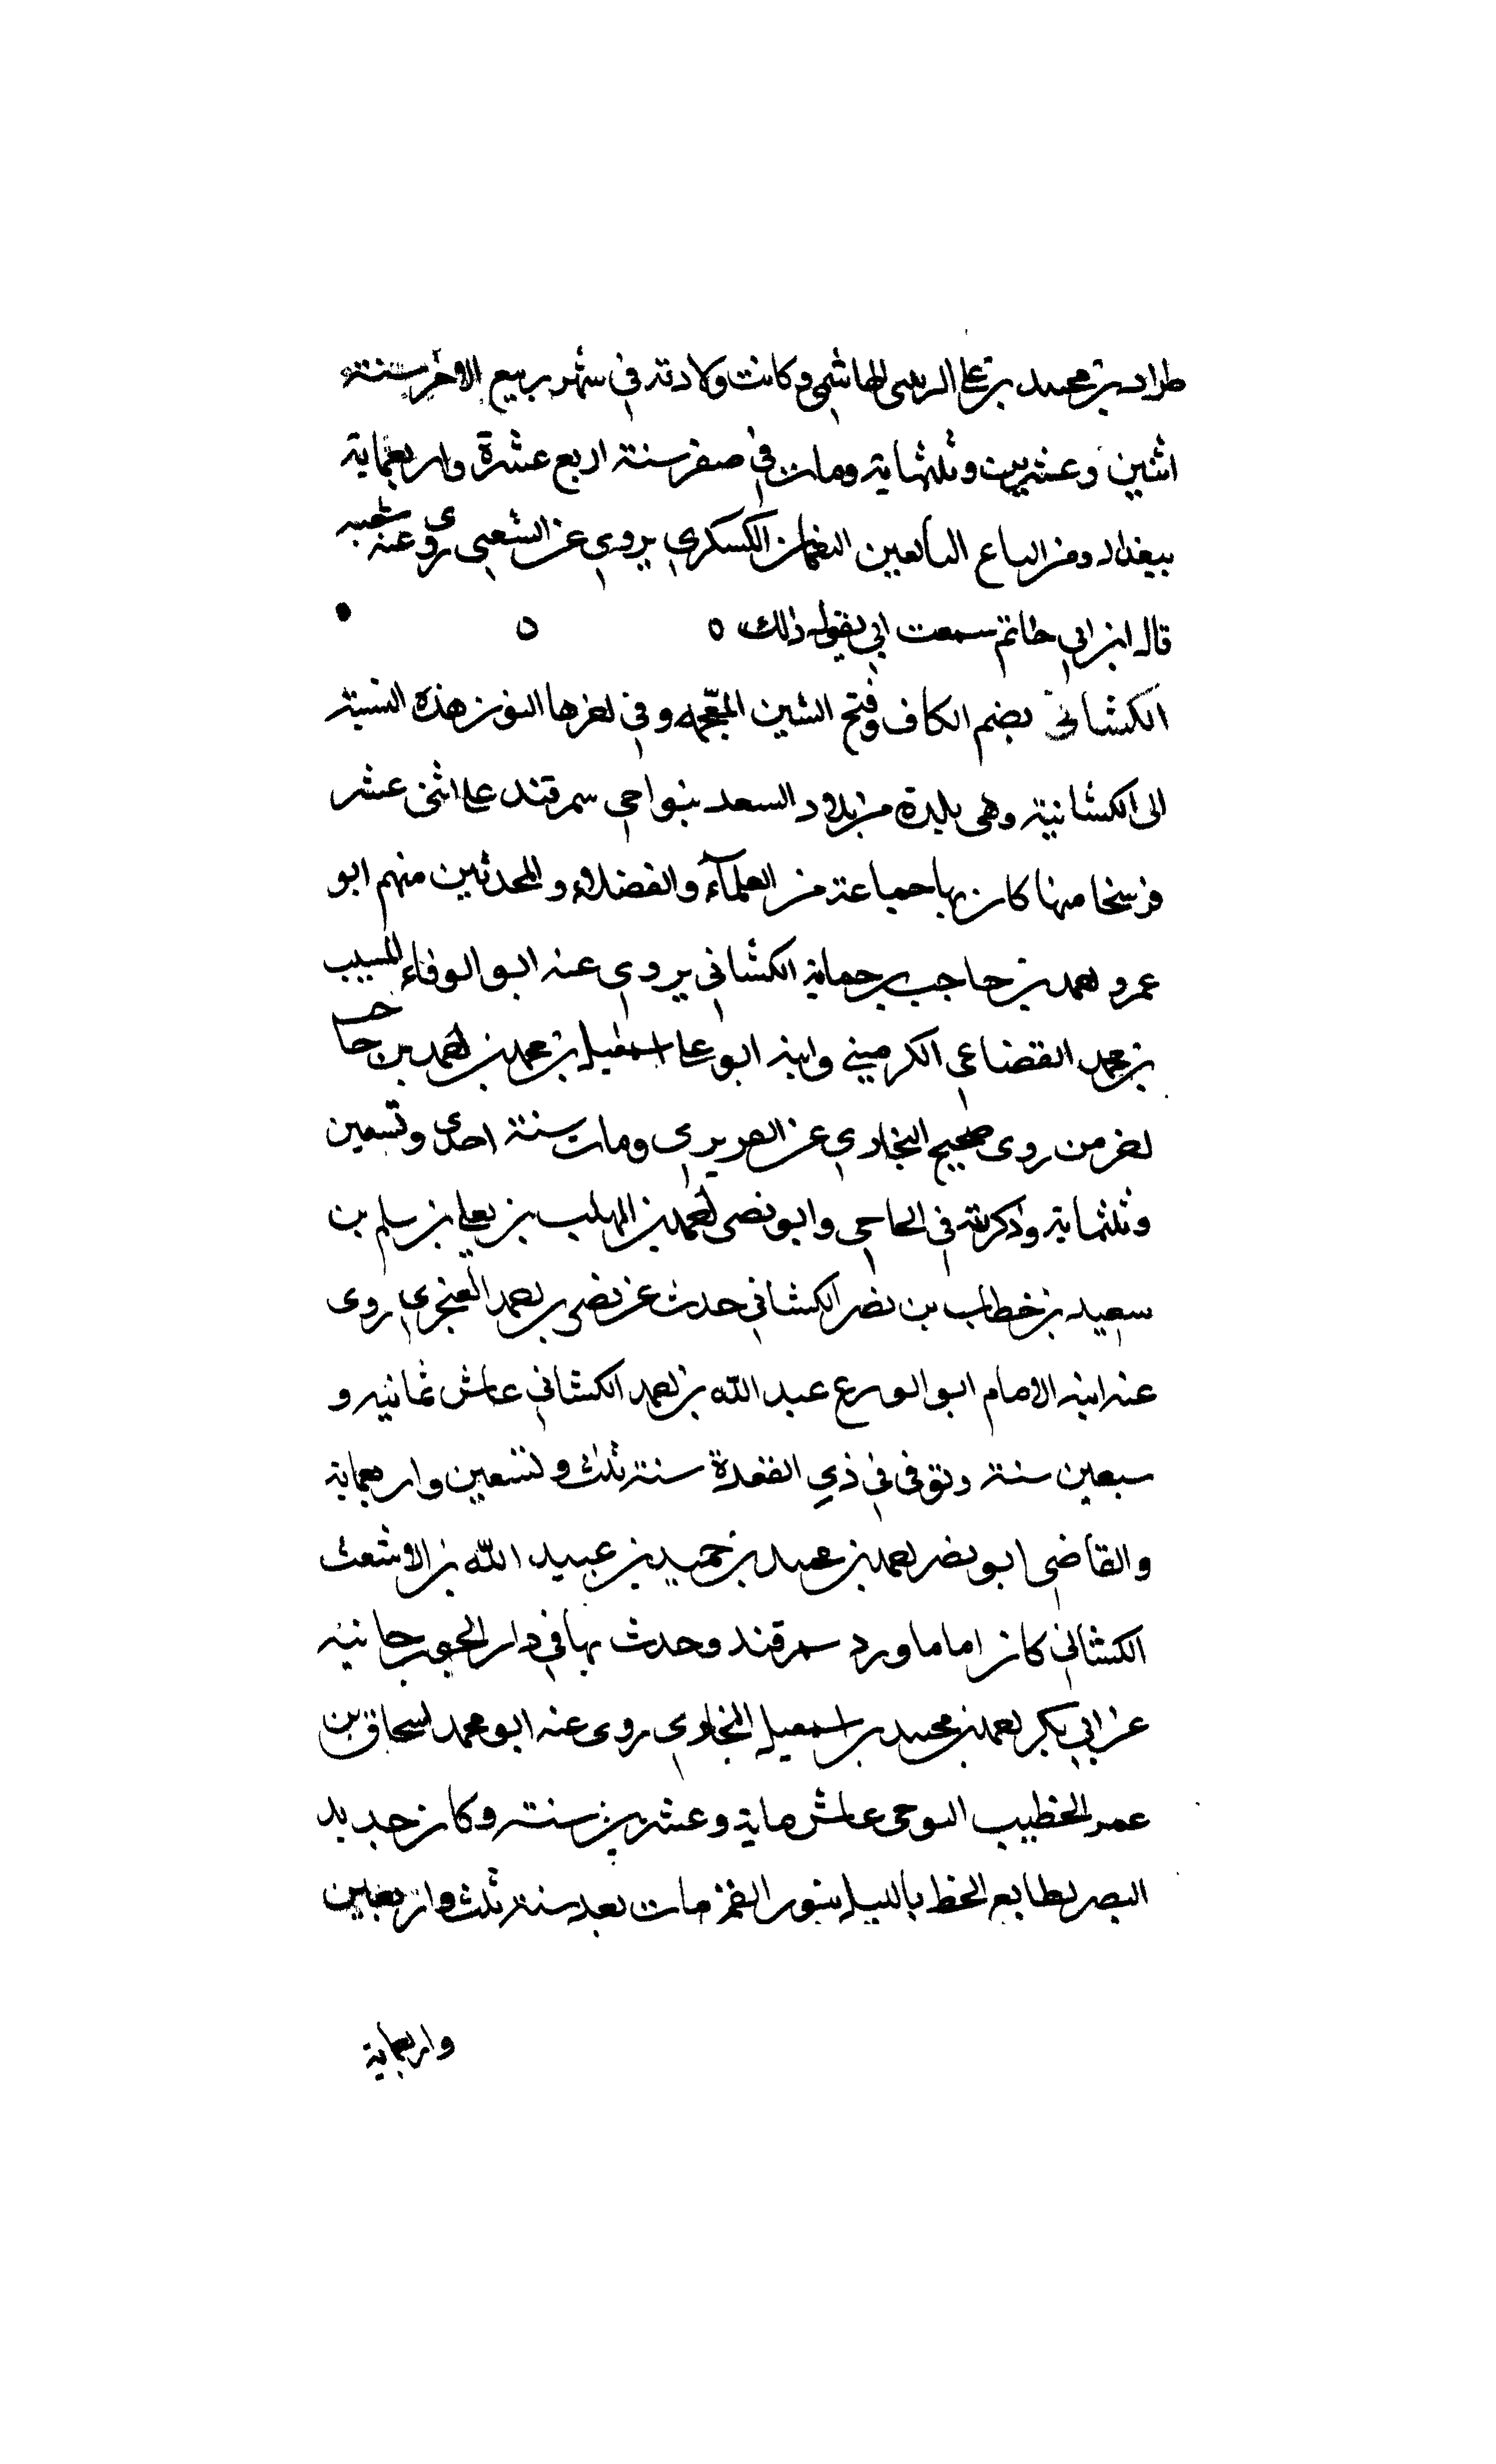 طراد بن محمد بن على الزينبى الهاشمي وكانت ولادته في شهر ربيع الاخر سنة
اثنين وعشرين وثلثماية ومات في صفر سنة اربع عشرة واربعماية
ببغداد ومن اتباع التابعين النعمان الكسكري يروي عن الشعبي روى عنه شعبه
قال ابن ابي حاتم سمعت ابي يقول ذلك ٥ ٥
الكشاني بضم الكاف وفتح الشين المعجمه وفي اخرها النون هذه النسبة
الى الكشانية وهى بليدة من بلاد السغد بنواحي سمرقند على اثنى عشر
فرسخا منها كان بها جماعة من العلمآء والفضلاء والمحدثين منهم ابو
عمرو احمد بن حاجب بن حمانة الكشاني يروي عنه ابو الوفاء المسيب
بن محمد القضاعي الكرميني وابنه ابو على اسمعيل بن محمد بن احمد بن حاجب
اخر من روى صحيح البخاري عن الفربري ومات سنة احدى وتسعين
وثلثماية وذكرته في الحاجي وابو نصر احمد بن المهلب بن يعلى بن سلم بن
سعيد بن خطاب بن نصر الكشاني حدث عن نصر بن احمد العنجري روى
عنه ابنه الامام ابو الورع عبد الله بن احمد الكشاني عاش ثمانيه و
سبعين سنة وتوفى في ذي القعدة سنة ثلث وتسعين واربعماية
والقاضي ابو نصر احمد بن محمد بن حميد بن عبيد الله بن الاشعث
الكشاني كان اماما ورد سمرقند وحدث بها في دار الجوزجانيه
عن ابي بكر احمد بن محمد بن اسمعيل البخاري روى عنه ابو محمد اسحاق بن
عمر الخطيب النوحى عاش ماية وعشرين سنة وكان حديد
البصر يطالع الخط بالليل بنور القمر مات بعد سنة ثلث واربعين
واربعماية